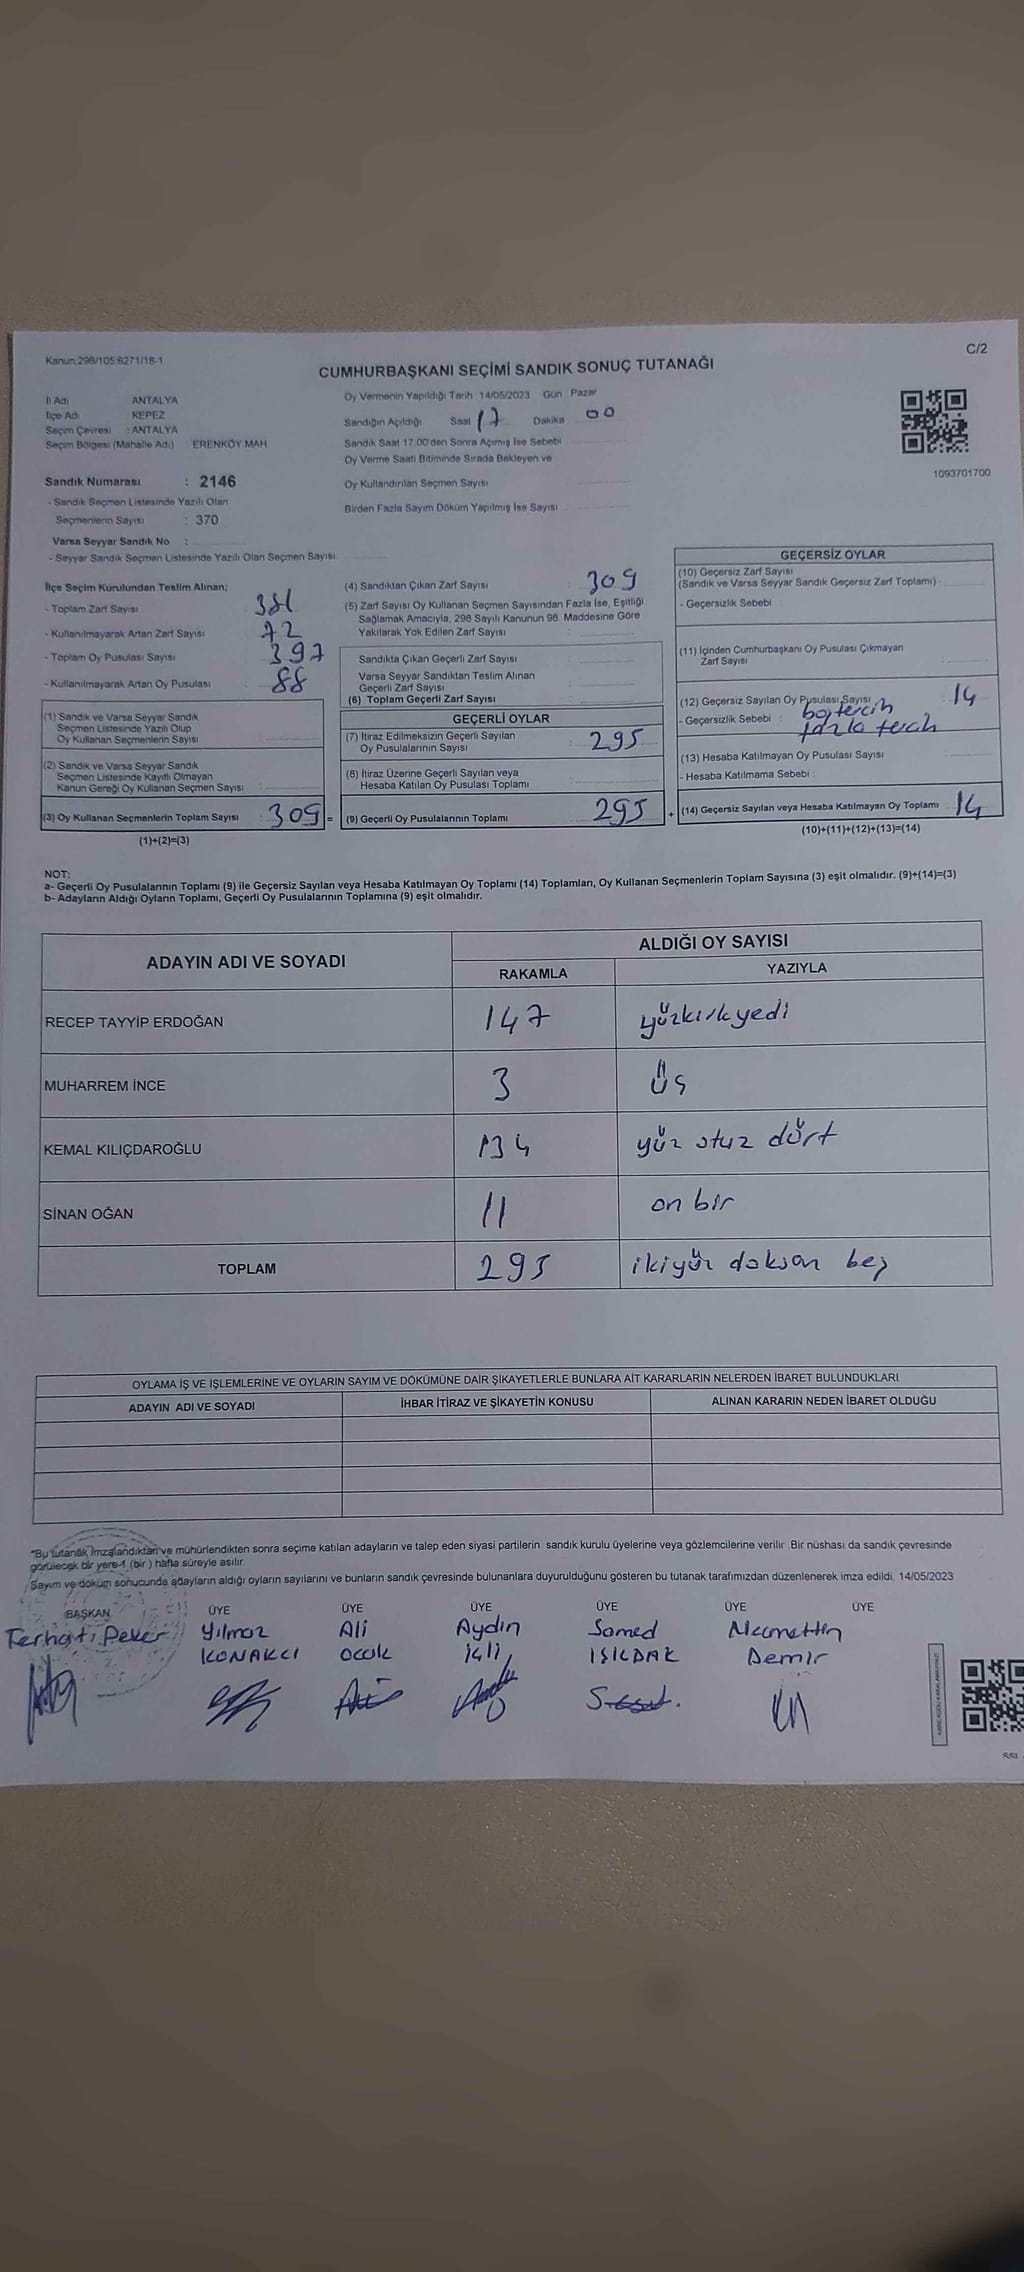 Kanun 298/105 6271/18-1
C/2
CUMHURBAŞKANI SEÇİMİ SANDIK SONUÇ TUTANAĞI
İl Adı ANTALYA
İlçe Adı KEPEZ
Seçim Çevresi : ANTALYA
Seçim Bölgesi (Mahalle Adı) ERENKÖY MAH
Sandık Numarası : 2146
- Sandık Seçmen Listesinde Yazılı Olan
Seçmenlerin Sayısı : 370
Varsa Seyyar Sandık No :
- Seyyar Sandık Seçmen Listesinde Yazılı Olan Seçmen Sayısı
Oy Vermenin Yapıldığı Tarih 14/05/2023 Gün : Pazar
Sandığın Açıldığı Saat 17 Dakika 00
Sandık Saat 17:00'den Sonra Açımış İse Sebebi
Oy Verme Saati Bitiminde Sırada Bekleyen ve
Oy Kullandırılan Seçmen Sayısı
Birden Fazla Sayım Döküm Yapılmış İse Sayısı
1093701700
İlçe Seçim Kurulundan Teslim Alınan;
- Toplam Zarf Sayısı 381
- Kullanılmayarak Artan Zarf Sayısı 72
- Toplam Oy Pusulası Sayısı 397
- Kullanılmayarak Artan Oy Pusulası : 88
(1) Sandık ve Varsa Seyyar Sandık
Seçmen Listesinde Yazılı Olup
Oy Kullanan Seçmenlerin Sayısı
(2) Sandık ve Varsa Seyyar Sandık
Seçmen Listesinde Kayıtlı Olmayan
Kanun Gereği Oy Kullanan Seçmen Sayısı
(3) Oy Kullanan Seçmenlerin Toplam Sayısı : 309 =
(1)+(2)=(3)
(4) Sandıktan Çıkan Zarf Sayısı : 309
(5) Zarf Sayısı Oy Kullanan Seçmen Sayısından Fazla İse, Eşitliği
Sağlamak Amacıyla, 298 Sayılı Kanunun 98. Maddesine Göre
Yakılarak Yok Edilen Zarf Sayısı
Sandıkta Çıkan Geçerli Zarf Sayısı
Varsa Seyyar Sandıktan Teslim Alınan
Geçerli Zarf Sayısı
(6) Toplam Geçerli Zarf Sayısı
GEÇERLİ OYLAR
(7) İtiraz Edilmeksizin Geçerli Sayılan
Oy Pusulalarının Sayısı 295
(8) İtiraz Üzerine Geçerli Sayılan veya
Hesaba Katılan Oy Pusulası Toplamı
(9) Geçerli Oy Pusulalarının Toplamı 295 +
GEÇERSİZ OYLAR
(10) Geçersiz Zarf Sayısı
(Sandık ve Varsa Seyyar Sandık Geçersiz Zarf Toplamı)
- Geçersizlik Sebebi
(11) İçinden Cumhurbaşkanı Oy Pusulası Çıkmayan
Zarf Sayısı
(12) Geçersiz Sayılan Oy Pusulası Sayısı 14
- Geçersizlik Sebebi : boş tercih
fazla tercih
(13) Hesaba Katılmayan Oy Pusulası Sayısı
- Hesaba Katılmama Sebebi :
(14) Geçersiz Sayılan veya Hesaba Katılmayan Oy Toplamı 14
(10)+(11)+(12)+(13)=(14)
NOT:
a- Geçerli Oy Pusulalarının Toplamı (9) ile Geçersiz Sayılan veya Hesaba Katılmayan Oy Toplamı (14) Toplamları, Oy Kullanan Seçmenlerin Toplam Sayısına (3) eşit olmalıdır. (9)+(14)=(3)
b- Adayların Aldığı Oyların Toplamı, Geçerli Oy Pusulalarının Toplamına (9) eşit olmalıdır.
ADAYIN ADI VE SOYADI ALDIĞI OY SAYISI
RAKAMLA YAZIYLA
RECEP TAYYİP ERDOĞAN 147 yüzkırkyedi
MUHARREM İNCE 3 üç
KEMAL KILIÇDAROĞLU 134 yüz otuz dört
SİNAN OĞAN 11 on bir
TOPLAM 295 ikiyüz doksan beş
OYLAMA İŞ VE İŞLEMLERİNE VE OYLARIN SAYIM VE DÖKÜMÜNE DAİR ŞİKAYETLERLE BUNLARA AİT KARARLARIN NELERDEN İBARET BULUNDUKLARI
ADAYIN ADI VE SOYADI İHBAR İTİRAZ VE ŞİKAYETİN KONUSU ALINAN KARARIN NEDEN İBARET OLDUĞU
*Bu tutanak imzalandıktan ve mühürlendikten sonra seçime katılan adayların ve talep eden siyasi partilerin sandık kurulu üyelerine veya gözlemcilerine verilir. Bir nüshası da sandık çevresinde
görülecek bir yere 1 (bir) hafta süreyle asılır.
Sayım ve döküm sonucunda adayların aldığı oyların sayılarını ve bunların sandık çevresinde bulunanlara duyurulduğunu gösteren bu tutanak tarafımızdan düzenlenerek imza edildi. 14/05/2023
BAŞKAN ÜYE ÜYE ÜYE ÜYE ÜYE ÜYE
Peker Yılmaz Ali Aydın Samed Necmettin
KONAKCI OCUK İÇLİ IŞILDAK Demir